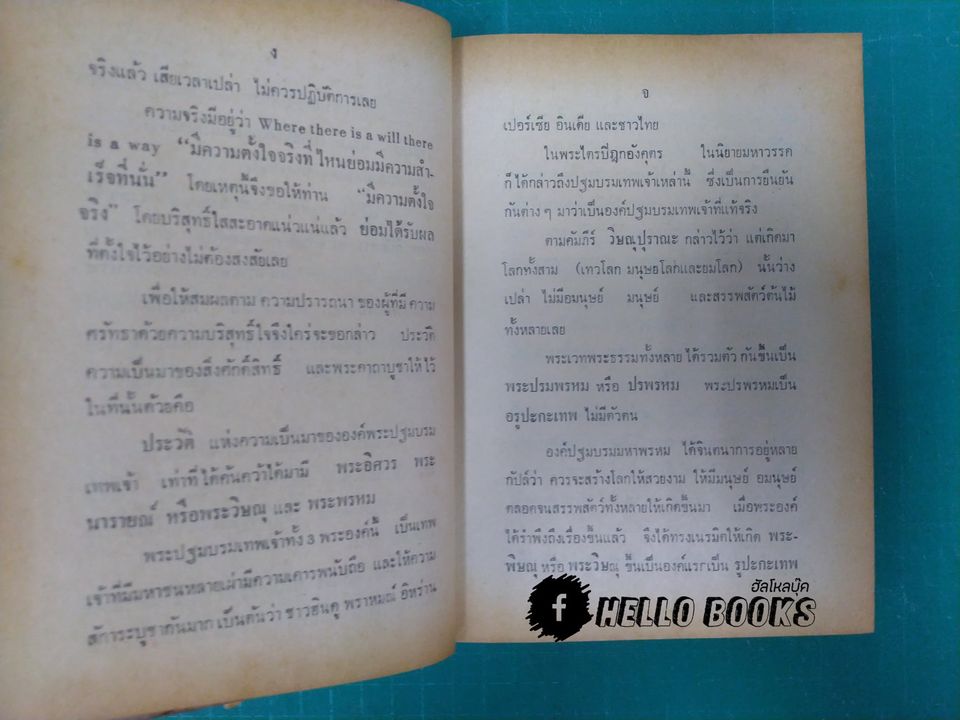 ง
จริงแล้ว เสียเวลาเปล่า ไม่ควรปฏิบัติการเลย
ความจริงมีอยู่ว่า Where there is a will there
is a way “มีความตั้งใจจริงที่ไหนย่อมมีความสำ-
เร็จที่นั่น” โดยเหตุนี้จึงขอให้ท่าน “มีความตั้งใจ
จริง” โดยบริสุทธิ์ใสสะอาดแน่วแน่แล้ว ย่อมได้รับผล
ที่ตั้งใจไว้อย่างไม่ต้องสงสัยเลย
เพื่อให้สมผลตาม ความปรารถนา ของผู้ที่มี ความ
ศรัทธาด้วยความบริสุทธิ์ใจจึงใคร่จะขอกล่าว ประวัติ
ความเป็นมาของสิ่งศักดิ์สิทธิ์ และพระคาถาบูชาให้ไว้
ในที่นี้นด้วยคือ
ประวัติ แห่งความเป็นมาขององค์พระปฐมบรม
เทพเจ้า เท่าที่ได้ค้นคว้าได้มามี พระอิศวร พระ
นารายณ์ หรือพระวิษณุ และ พระพรหม
พระปฐมบรมเทพเจ้าทั้ง 3 พระองค์นี้ เป็นเทพ
เจ้าที่มีมหาชนหลายเผ่ามีความเคารพนับถือ และให้ความ
สักการะบูชากันมาก เป็นต้นว่า ชาวฮินดู พราหมณ์ อิหร่าน
จ
เปอร์เซีย อินเดีย และชาวไทย
ในพระไตรปิฎกอังคุตร ในนิยายมหาวรรค
ก็ได้กล่าวถึงปฐมบรมเทพเจ้าเหล่านี้ ซึ่งเป็นการยืนยัน
กันต่าง ๆ มาว่าเป็นองค์ปฐมบรมเทพเจ้าที่แท้จริง
ตามคัมภีร์ วิษณุปุราณะ กล่าวไว้ว่า แต่เกิดมา
โลกทั้งสาม (เทวโลก มนุษยโลกและยมโลก) นั้นว่าง
เปล่า ไม่มีอมนุษย์ มนุษย์ และสรรพสัตว์ต้นไม้
ทั้งหลายเลย
พระเวทพระธรรมทั้งหลาย ได้รวมตัว กันขึ้นเป็น
พระปรมพรหม หรือ ปรพรหม พระปรพรหมเป็น
อรูปะกะเทพ ไม่มีตัวตน
องค์ปฐมบรมมหาพรหม ได้จินตนาการอยู่หลาย
กัปล์ว่า ควรจะสร้างโลกให้สวยงาม ให้มีมนุษย์ อมนุษย์
ตลอดจนสรรพสัตว์ทั้งหลายให้เกิดขึ้นมา เมื่อพระองค์
ได้รำพึงถึงเรื่องขึ้นแล้ว จึงได้ทรงเนรมิตให้เกิด พระ-
พิษณุ หรือ พระวิษณุ ขึ้นเป็นองค์แรกเป็น รูปะกะเทพ
ฮัลโหลบุ๊ค
f HELLO BOOKS